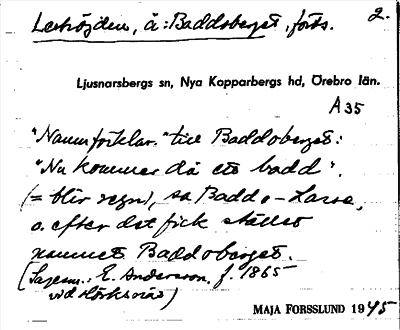 Lerhöjden, ä: Baddoberget, forts. 2.
Ljusnarsbergs sn, Nya Kopparbergs hd, Örebro län.
A 35
"Namnförklar." till Baddoberget:
"Nu kommer då ett badd".
(= blir regn), sa Baddo-Lasse,
o. efter det fick stället
namnet Baddoberget.
(Sagesm.: E. Andersson, f. 1865
vid Hörksviks)
MAJA FORSSLUND 1945